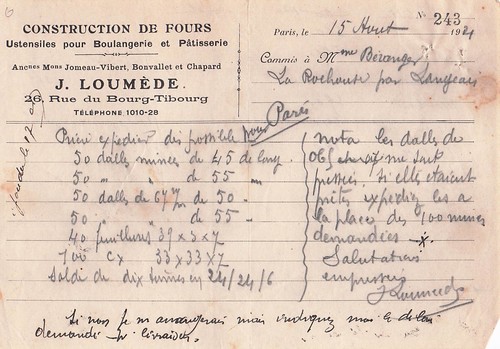 CONSTRUCTION DE FOURS
Ustensiles pour Boulangerie et Pâtisserie
Ancnes Mons Jomeau-Vibert, Bonvallet et Chapard
J. LOUMÈDE.
26, Rue du Bourg-Tibourg
TÉLÉPHONE: 1010-28
N. 243
Paris, le 15 Aout 1921
Commis à Mme Béranger
La Rochouse par Langeais
Prière expedier dès possible pour Paris
50 dalles minces de 45 de long
50 " " de 55 "
50 dalles de 67 m/m de 50
50 " " de 55
40 feuillures 39 x 3 x 7
100 cx 33 x 33 x 7
Solde de dix tonnes en 24/24/6
nota les dalles de
me sont
pressées si elles étaient
prêtes expediez les a
la place des 100 minces
demandées
Salutations
empressées
J Loumède
le 17
si non je m'arrangerais mais indiquez moi le délai
demandé pr livraison